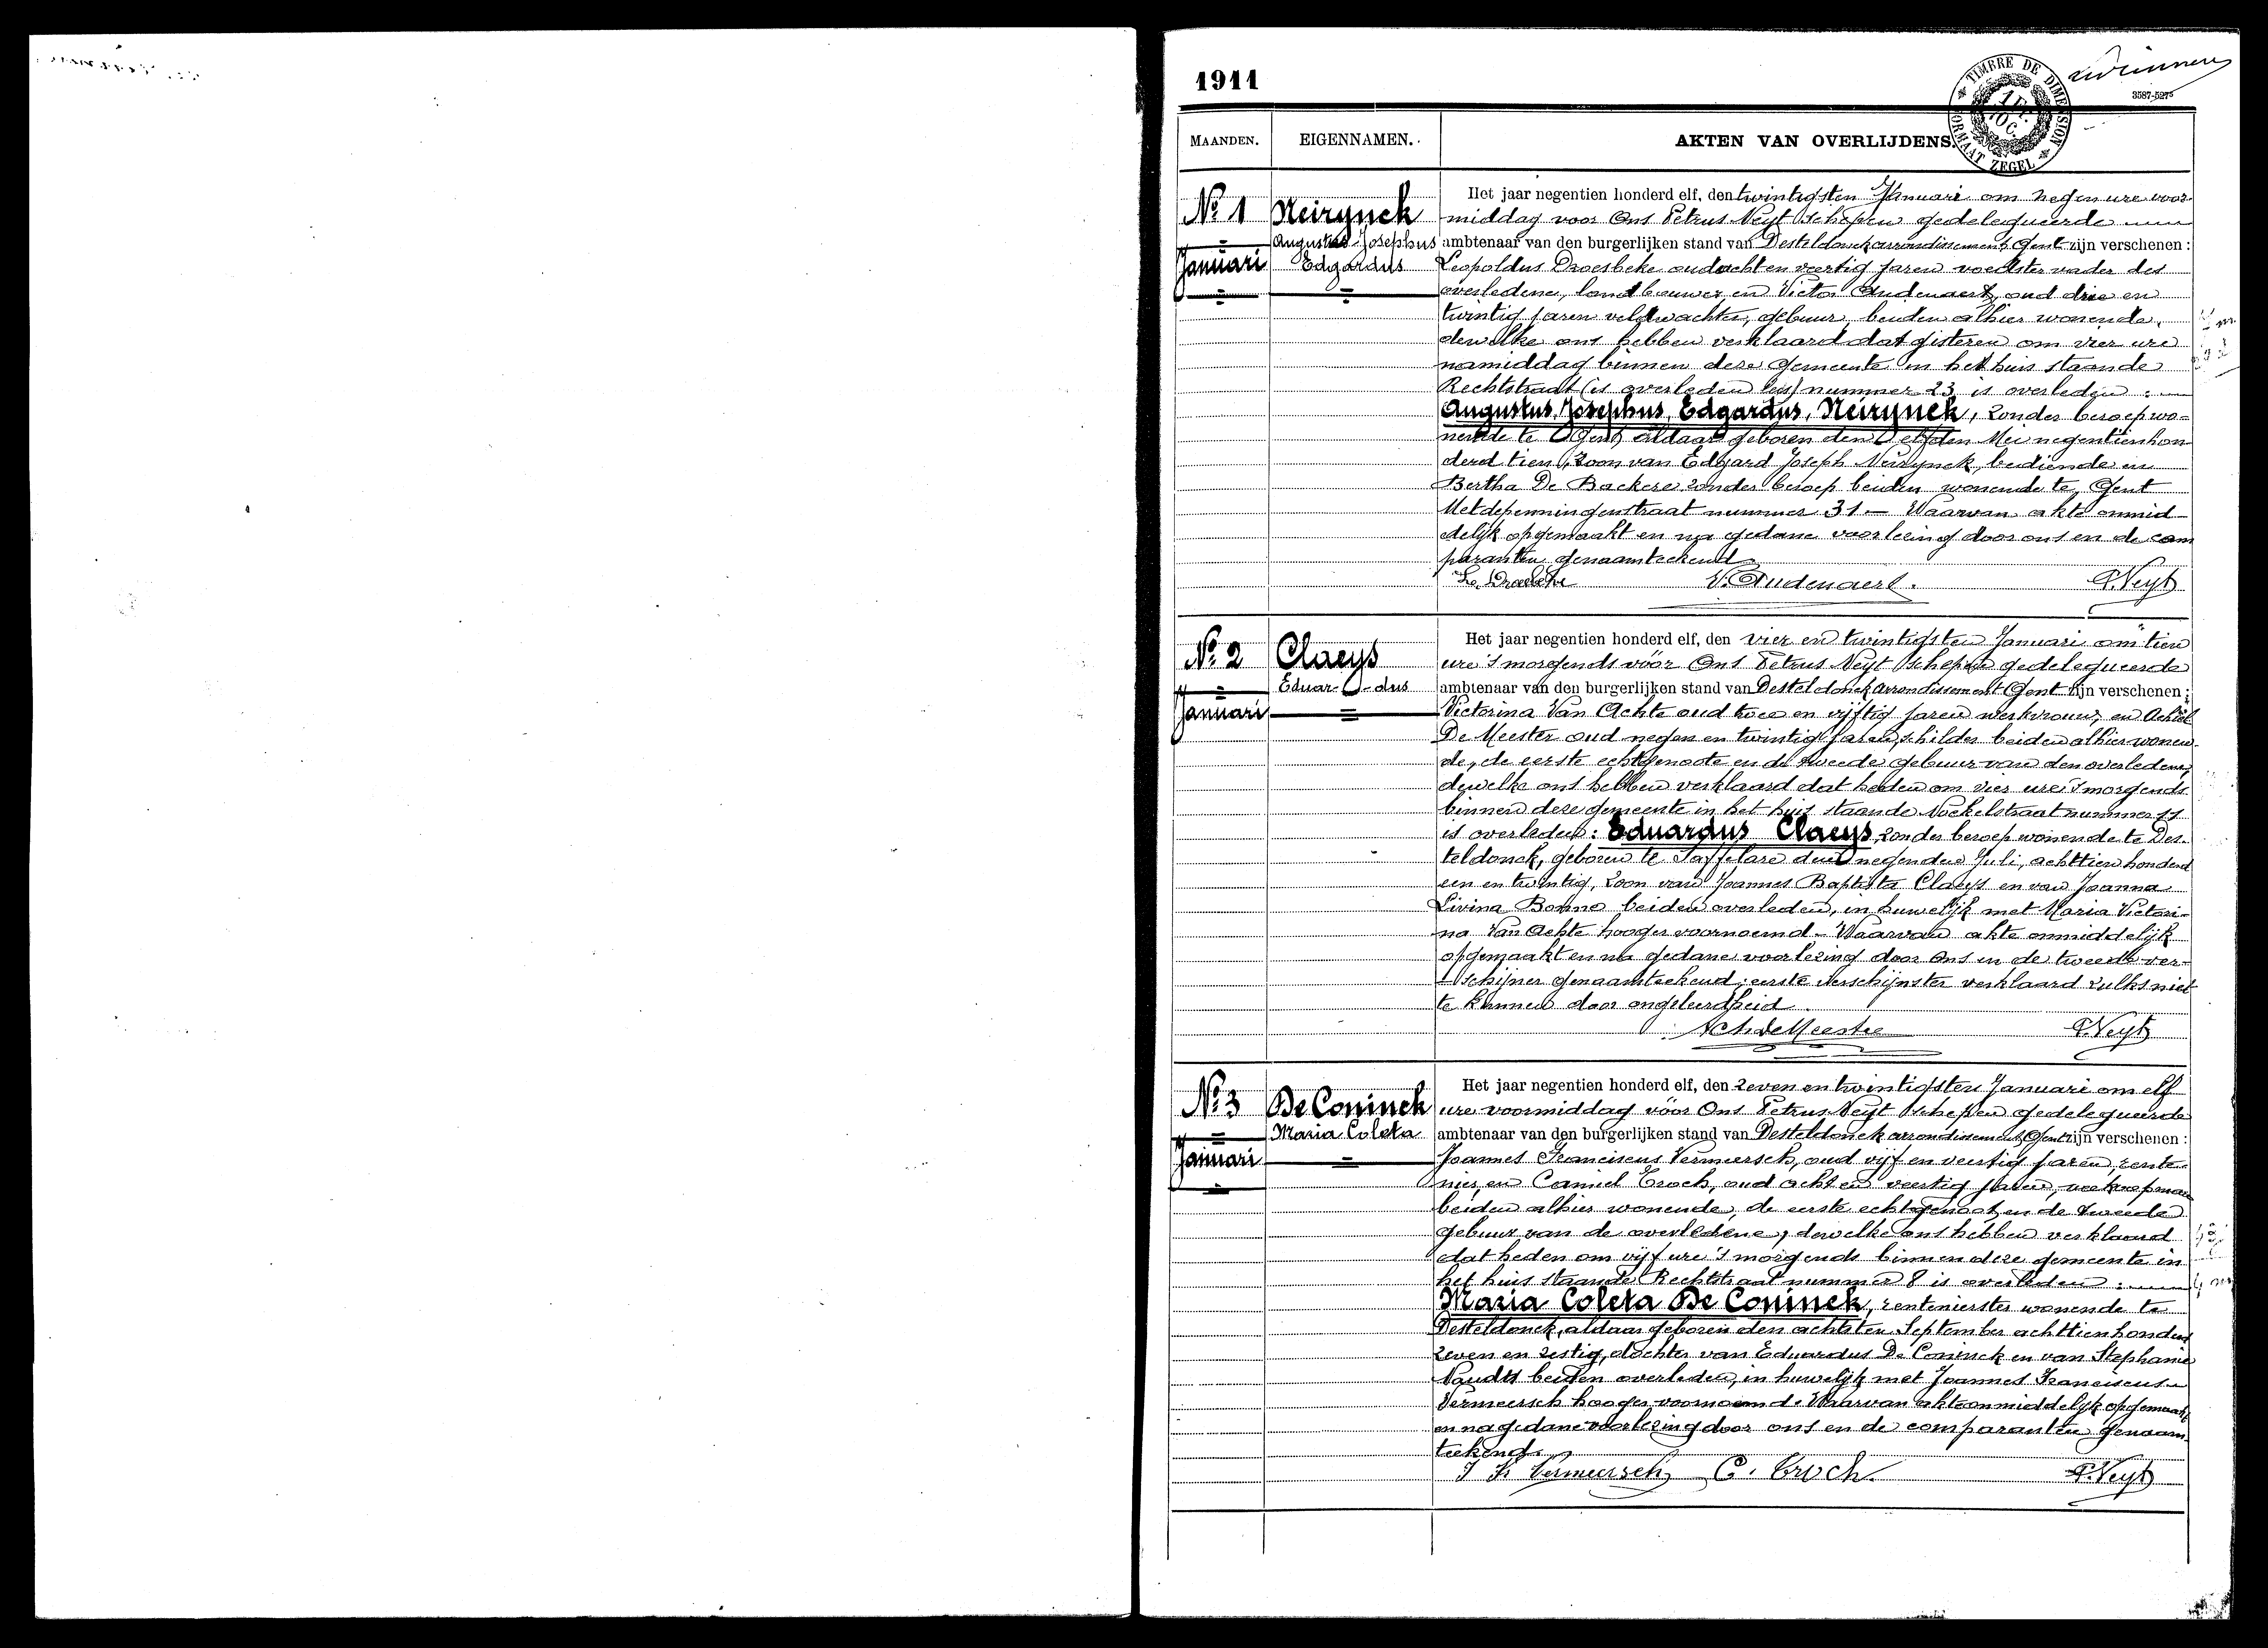 1911
TIMBRE DE DIMENSION
FORMAAT ZEGEL
1 FR. 10 C.
3587-5275
MAANDEN.
EIGENNAMEN.
AKTEN VAN OVERLIJDENS.
No 1
Januari
Neirynck
Augustus Josephus
Edgardus
Het jaar negentien honderd elf, den twintigsten Januari om negen ure voor-
middag voor Ons Petrus Neyt schepen gedelegueerde
ambtenaar van den burgerlijken stand van Desteldonck arrondissement Gent zijn verschenen :
Leopoldus Droesbeke oud acht en veertig jaren voedstervader des
overledene, landbouwer en Victor Audenaert, oud drie en
twintig jaren veldwachter, gebuur, beiden alhier wonende,
dewelke ons hebben verklaard dat gisteren om vier ure
namiddag binnen deze gemeente in het huis staande
Rechtstraat (is overleden lees) nummer 23 is overleden :
Augustus, Josephus, Edgardus, Neirynck, zonder beroep wo-
nende te Gent, aldaar geboren den elfden Mei negentien hon
derd tien, zoon van Edgard Joseph Neirynck, bediende en
Bertha De Backere zonder beroep beiden wonende te Gent
Metdepenningenstraat nummer 31 — Waarvan akte onmid-
delijk opgemaakt en na gedane voorlezing door ons en de com
paranten genaamteekend
V. Audenaert.
P. Neyt
No 2
Januari
Claeys
Eduar-dus
Het jaar negentien honderd elf, den vier en twintigsten Januari om tien
ure 's morgends vóór Ons Petrus Neyt schepen gedelegueerde
ambtenaar van den burgerlijken stand van Desteldonck arrondissement Gent zijn verschenen :
Victorina Van Achte oud twee en vijftig jaren werkvrouw, en Achiel
De Meester oud negen en twintig jaren, schilder beiden alhier wonen-
de, de eerste echtgenoote en de tweede gebuur van den overledene,
dewelke ons hebben verklaard dat heden om vier ure 's morgends
binnen deze gemeente in het huis staande Noekelstraat nummer 11
is overleden : Eduardus Claeys zonder beroep wonende te Des-
teldonck, geboren te Saffelare den negenden Juli, achttien honderd
een en twintig, zoon van Joannes Baptista Claeys en van Joanna
Livina Bonne beiden overleden, in huwelijk met Maria Victori-
na Van Achte hooger voornoemd - Waarvan akte onmiddelijk
opgemaakt en na gedane voorlezing door Ons en de tweede ver-
schijner genaamteekend ; eerste verschijnster verklaard zulks niet
te kunnen door ongeleerdheid
Ach. de Meester
P. Neyt
No 3
Januari
De Coninck
Maria Coleta
Het jaar negentien honderd elf, den zeven en twintigsten Januari om elf
ure voormiddag vóór Ons Petrus Neyt schepen gedelegueerde
ambtenaar van den burgerlijken stand van Desteldonck arrondissement Gent zijn verschenen :
Joannes Franciscus Vermeersch, oud vijf en veertig jaren, rente-
nier, en Camiel Croch, oud acht en veertig jaren,
beiden alhier wonende, de eerste echtgenoot en de tweede
gebuur van de overledene, dewelke ons hebben verklaard
dat heden om vijf ure 's morgends binnen deze gemeente in
het huis staande Rechtstraat nummer 8 is overleden :
Maria Coleta De Coninck, rentenierster wonende te
Desteldonck, aldaar geboren den achtsten September achttien honderd
zeven en zestig, dochter van Eduardus De Coninck en van Stephanie
Naudts beiden overleden, in huwelijk met Joannes Franciscus
Vermeersch hooger voornoemd. Waarvan akte onmiddelijk opgemaakt
en na gedane voorlezing door ons en de comparanten genaam-
teekend.
J F Vermeersch
C. Croch.
P. Neyt